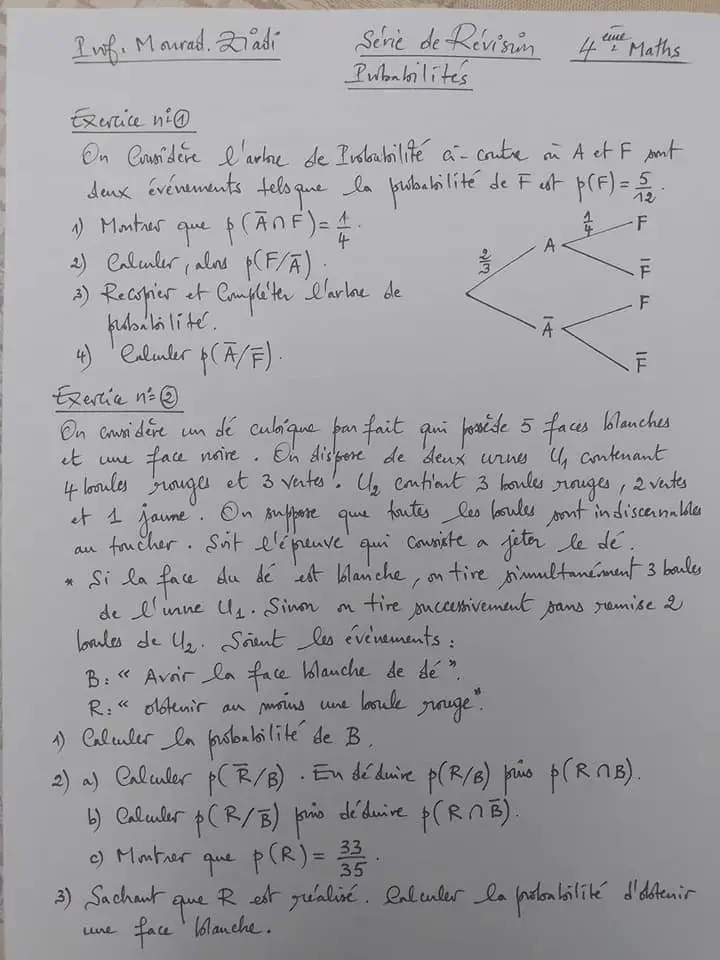 Prof. Mourad. Ziadi
Série de Révision
4ème Maths
Probabilités
Exercice n°=①
On Considère l'arbre de Probabilité ci-contre où A et F sont
deux événements tels que la probabilité de F est p(F) = 5/12.
1) Montrer que p(A̅∩F) = 1/4.
2) Calculer, alors p(F/A̅).
3) Recopier et Compléter l'arbre de
probabilité.
4) Calculer p(A̅/F̅).
2/3
A
1/4
F
F̅
A̅
F
F̅
Exercice n°=②
On considère un dé cubique parfait qui possède 5 faces blanches
et une face noire. On dispose de deux urnes U1 contenant
4 boules rouges et 3 vertes. U2 contient 3 boules rouges, 2 vertes
et 1 jaune. On suppose que toutes les boules sont indiscernables
au toucher. Soit l'épreuve qui consiste a jeter le dé.
* Si la face du dé est blanche, on tire simultanément 3 boules
de l'urne U1. Sinon on tire successivement sans remise 2
boules de U2. Soient les événements :
B: "Avoir la face blanche de dé".
R: "obtenir au moins une boule rouge".
1) Calculer la probabilité de B.
2) a) Calculer p(R̅/B). En déduire p(R/B) puis p(R∩B).
b) Calculer p(R/B̅) puis déduire p(R∩B̅).
c) Montrer que p(R) = 33/35.
3) Sachant que R est réalisé. Calculer la probabilité d'obtenir
une face blanche.